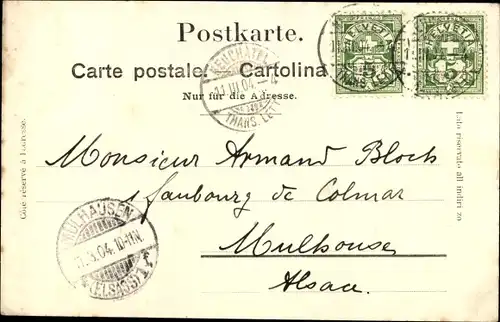 Postkarte.
Carte postale. Cartolina
Nur für die Adresse.
HELVETIA
5
HELVETIA
5
NEUCHÂTEL
11 III 04
TRANS. LET
Côté réservé à l'adresse.
Lato riservato all indirizzo
Monsieur Armand Bloch
1 faubourg de Colmar
Mulhouse
Alsace
MÜLHAUSEN
11.3.04. 10-11N.
(ELSASS) 1